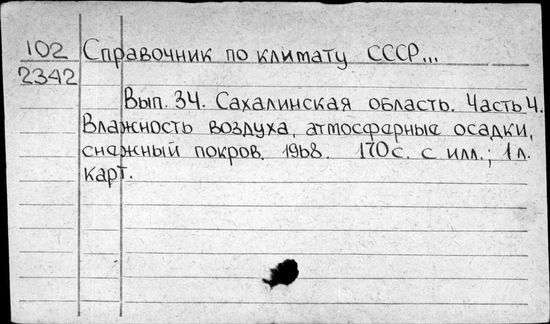 102 Справочник по климату СССР...
2342
Вып. 34. Сахалинская область. Часть 4.
Влажность воздуха, атмосферные осадки,
снежный покров. 1968. 170 с. с илл.; 1 л.
карт.